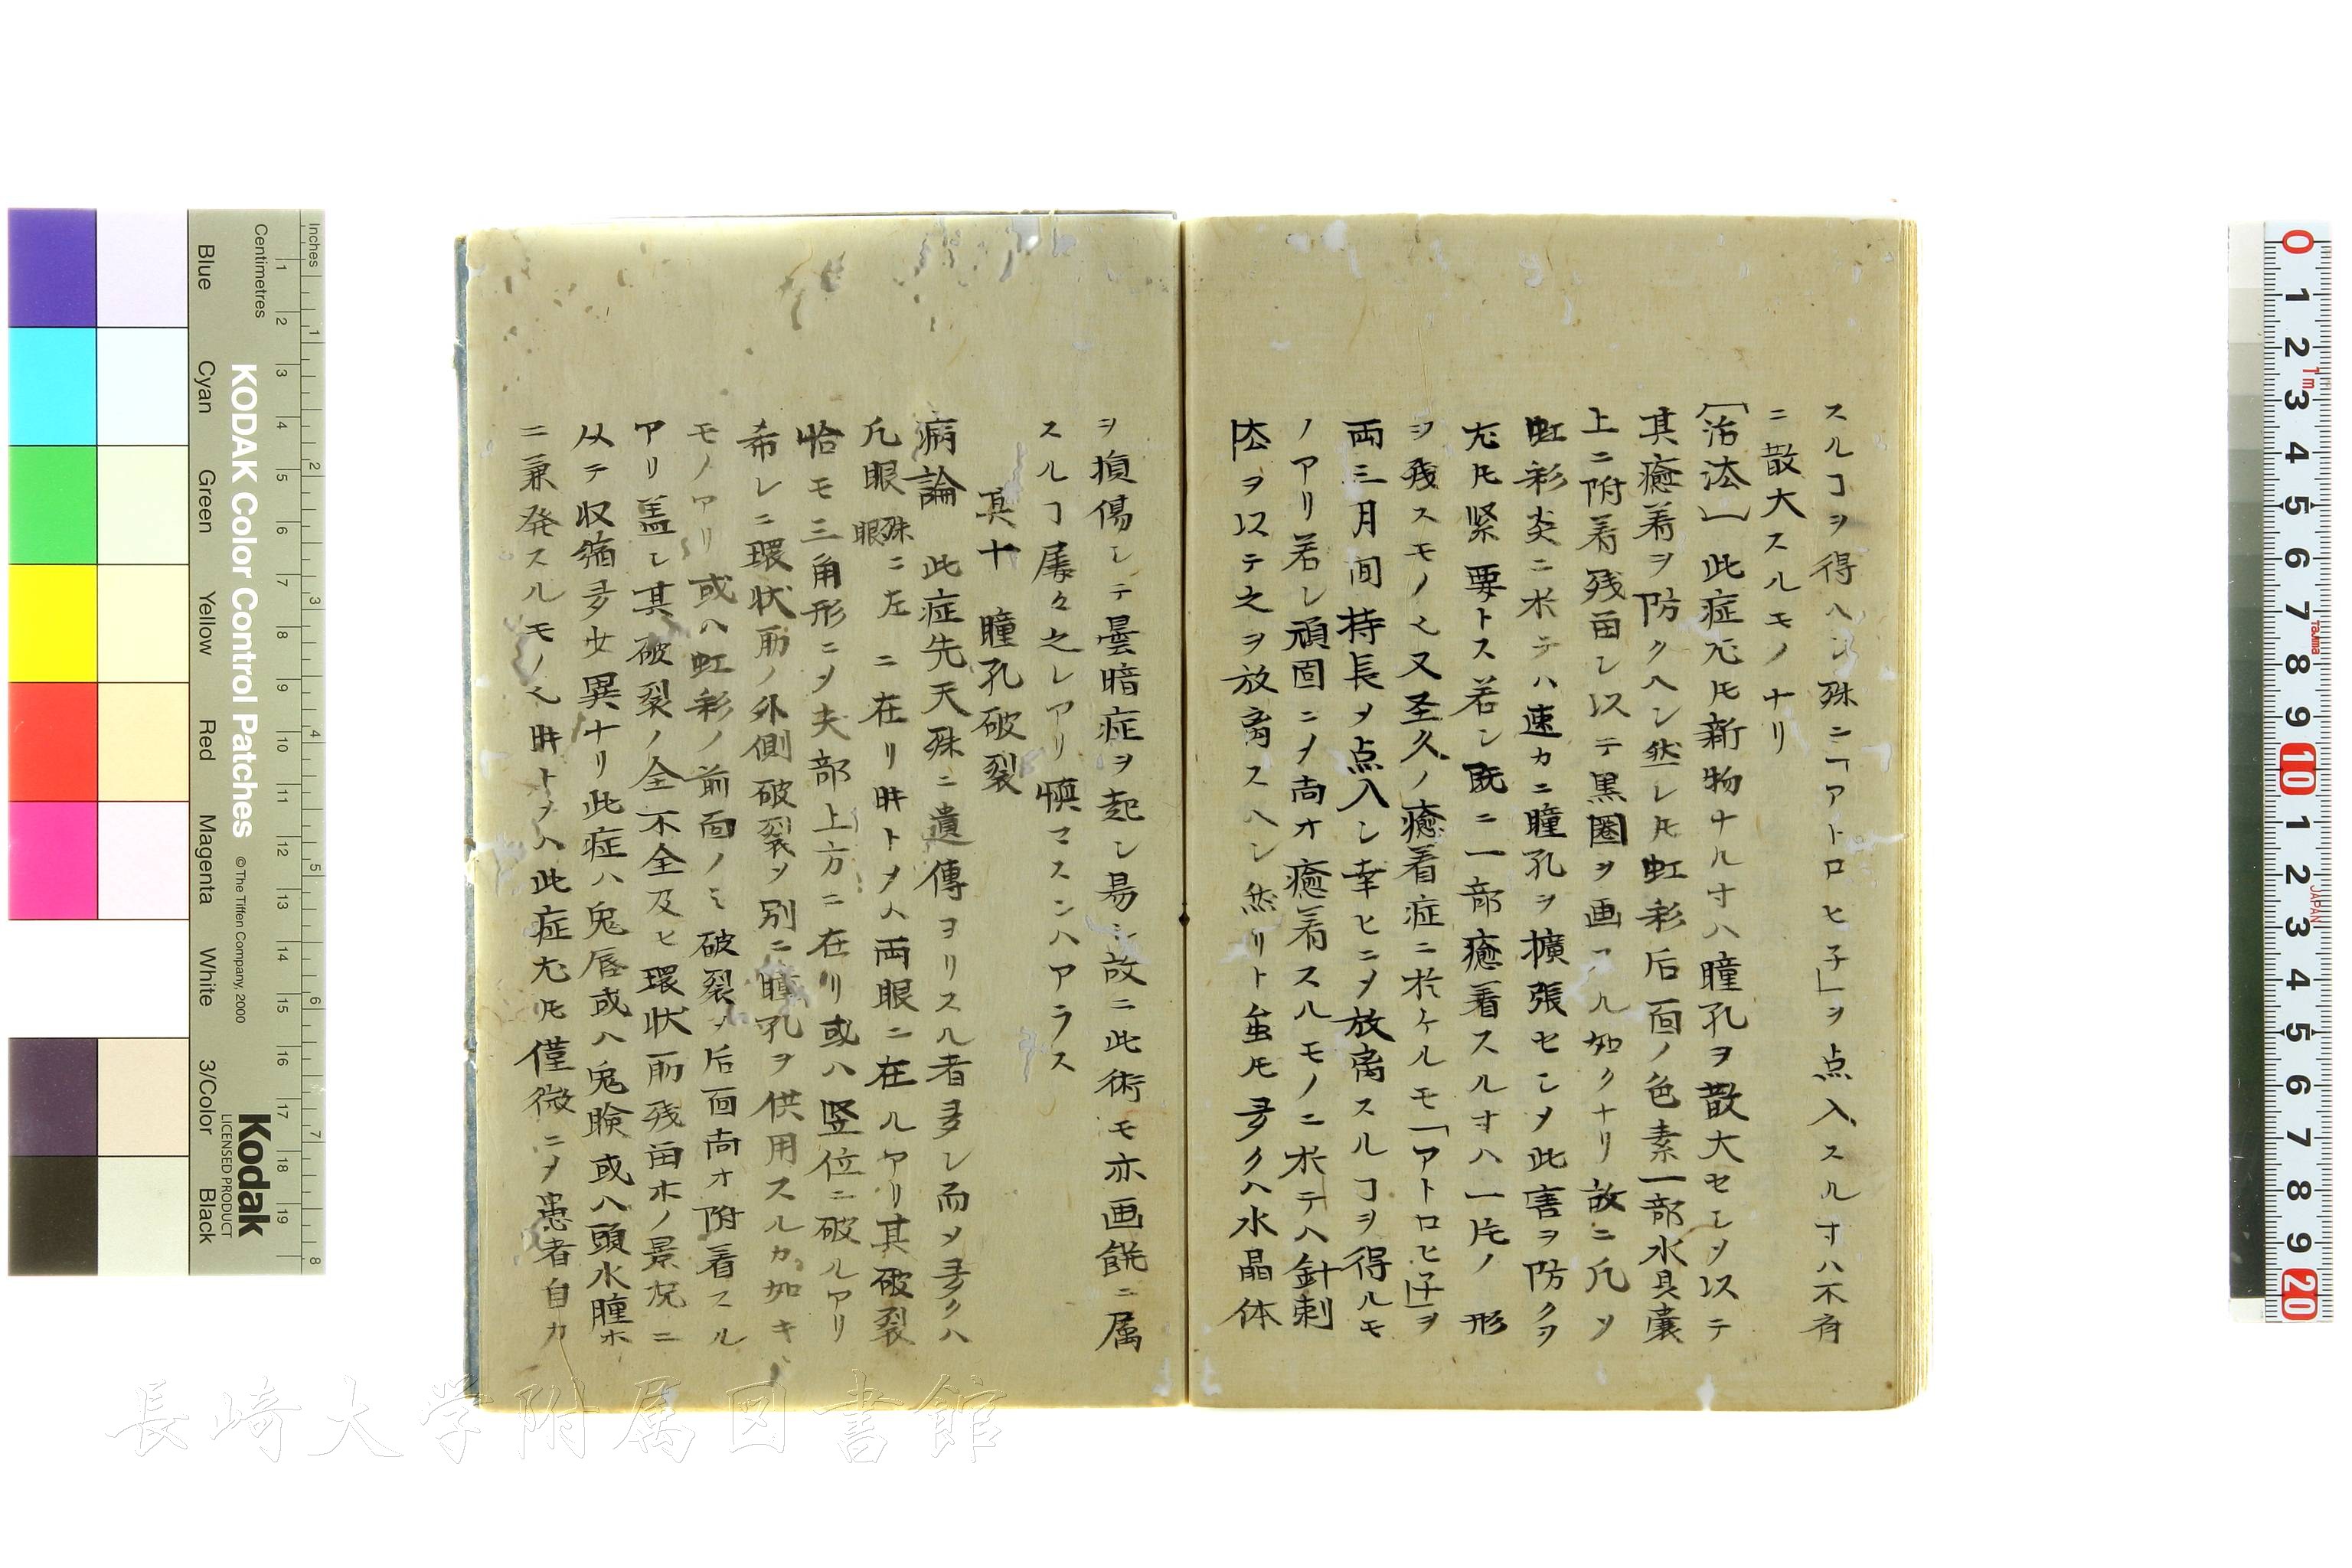 スルヿヲ得ヘシ殊ニ「アトロヒ子」ヲ点入スル寸ハ不斉
ニ散大スルモノナリ
〔治法〕此症尤𪜈新物ナル寸ハ瞳孔ヲ散大セシメ以テ
其癒着ヲ防クヘシ然レ𪜈虹彩后面ノ色素一部水具嚢
上ニ附着残畄シ以テ黒圏ヲ画スル如クナリ故ニ凡ソ
虹彩炎ニ於テハ速カニ瞳孔ヲ擴張セシメ此害ヲ防クヲ
尤𪜈緊要トス若シ既ニ一部癒着スル寸ハ一片ノ形
ヲ残スモノ也又至久ノ癒着症ニ於ケルモ「アトロヒ子」ヲ
両三月間持長メ点入シ幸ヒニメ放离スルヿヲ得ルモ
ノアリ若シ頑固ニメ尚オ癒着スルモノニ於テハ針刺
法ヲ以テ之ヲ放离スヘシ然リト虽𪜈多クハ水晶体
ヲ損傷シテ曇暗症ヲ起シ易シ故ニ此術モ亦画餅ニ属
スルヿ屡々之レアリ慎マスンハアラス
其十 瞳孔破裂
病論 此症先天殊ニ遺傳ヨリスル者多シ而メ多クハ
凡眼殊ニ左眼ニ在リ時トメハ両眼ニ在ルアリ其破裂
恰モ三角形ニメ夫部上方ニ在リ或ハ竪位ニ破ルアリ
希レニ環状筋ノ外側破裂メ別ニ瞳孔ヲ供用スルカ如キ
モノアリ或ハ虹彩ノ前面ノミ破裂メ后面尚オ附着スル
アリ盖シ其破裂ノ全不全及ヒ環状筋残畄ホノ景况ニ
从テ収縮多少異ナリ此症ハ兔唇或ハ兔瞼或ハ頭水腫ホ
ニ兼発スルモノ也時トメハ此症尤𪜈僅微ニメ患者自カ
Inches
Centimetres
KODAK Color Control Patches
© The Tiffen Company, 2000
Kodak
LICENSED PRODUCT
Blue
Cyan
Green
Yellow
Red
Magenta
White
3/Color
Black
長崎大学附属図書館